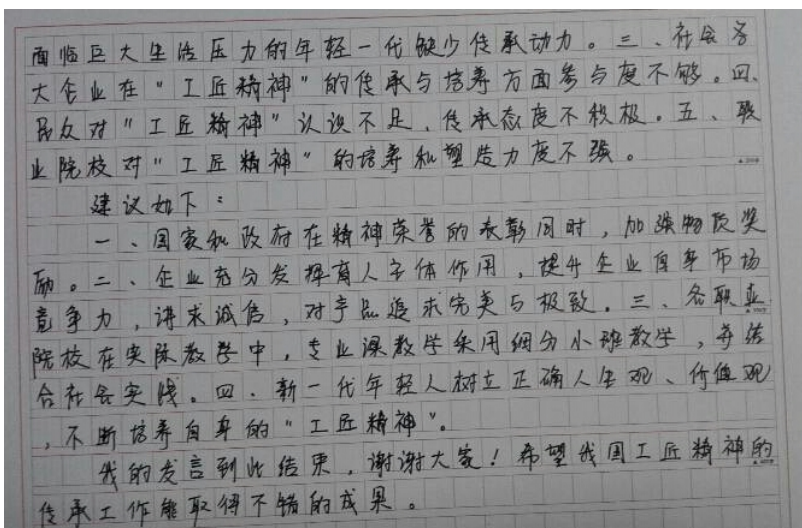 面临巨大生活压力的年轻一代缺少传承动力。三、社会各
大企业在“工匠精神”的传承与培养方面参与度不够。四、
民众对“工匠精神”认识不足,传承态度不积极。五、职
业院校对“工匠精神”的培养和塑造力度不强。
建议如下:
一、国家和政府在精神荣誉的表彰同时,加强物质奖
励。二、企业充分发挥育人主体作用,提升企业自身市场
竞争力,讲求诚信,对产品追求完美与极致。三、各职业
院校在实际教学中,专业课教学采用细分小班教学,并结
合社会实践。四、新一代年轻人树立正确人生观、价值观
,不断培养自身的“工匠精神”。
我的发言到此结束,谢谢大家!希望我国工匠精神的
传承工作能取得不错的成果。